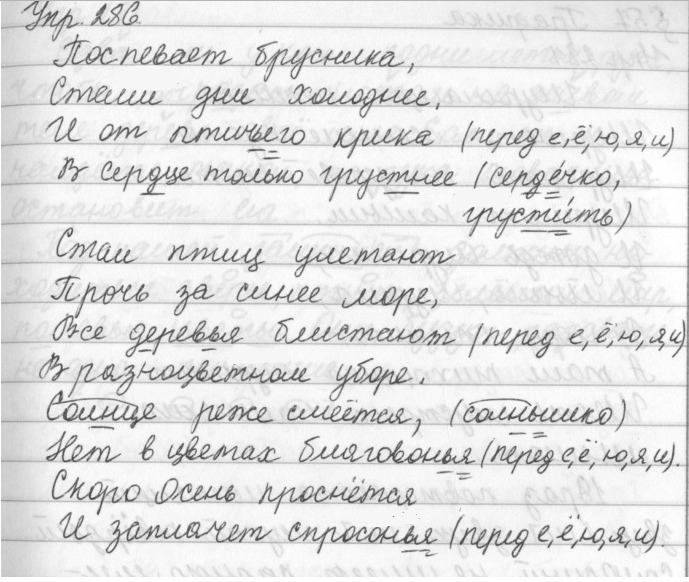 Упр. 286.
Поспевает брусника,
Стали дни холоднее,
И от птичьего крика (перед е, ё, ю, я, и)
В сердце только грустнее (сердечко,
грусти́ть)
Стаи птиц улетают
Прочь за синее море,
Все деревья блистают (перед е, ё, ю, я, и)
В разноцветном уборе.
Солнце реже смеётся, (солнышко)
Нет в цветах благовонья (перед е, ё, ю, я, и).
Скоро Осень проснётся
И заплачет спросонья (перед е, ё, ю, я, и)